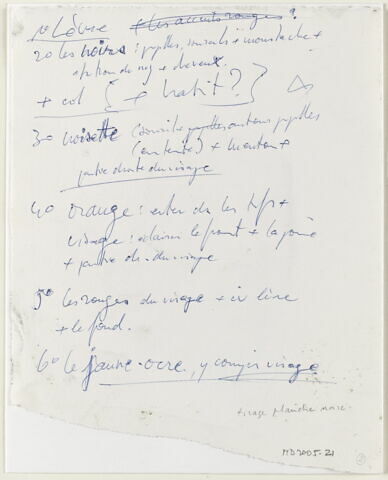 1º Lèvre + les accents rouges ?
2º les noires : pupilles, sourcils + moustache +
du nez + cheveux.
+ col { + habit ? }
3º noisette (sourcils pupilles
+ menton +
partie droite du visage
4º orange : +
visage : éclaircir le front + la joue
+ partie dr. du visage
5º les rouges du visage + lèvre
+ le fond.
6º le jaune-ocre, y compris visage
tirage planche noire
MD 2005-21